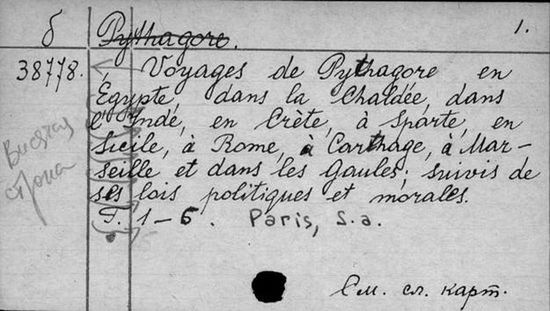 б Pythagore. 1.
38778. Voyages de Pythagore en
Égypte, dans la Chaldée, dans
l'Inde, en Crète, à Sparte, en
Sicile, à Rome, à Carthage, à Mar-
seille et dans les Gaules; suivis de
ses lois politiques et morales.
T. 1-6. Paris, S.a.
Висячая
строка
См. сл. карт.